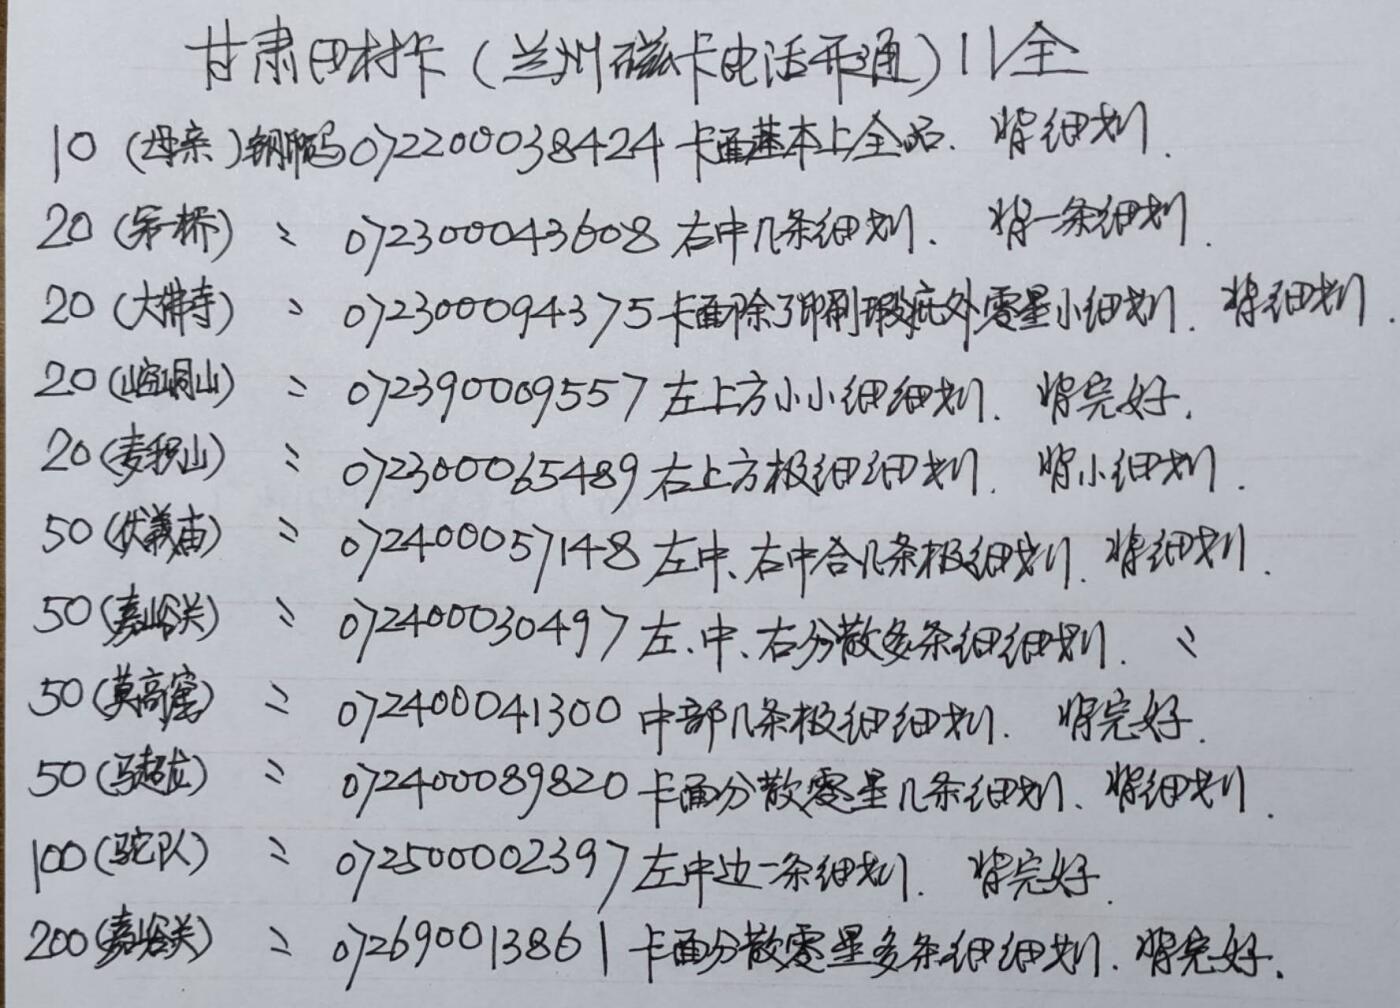 甘肃田村卡(兰州磁卡电话开通)11全
10(母亲)钢码072200038424卡面基本上全品.背细划.
20(第一桥)〃072300043608右中几条细划.背一条细划.
20(大佛寺)〃072300094375卡面除了印刷瑕疵外零星小细划.背细划.
20(崆峒山)〃072390009557左上方小小细细划.背完好.
20(麦积山)〃072300065489右上方极细细划.背小细划.
50(伏羲庙)〃072400057148左中、右中含几条极细划.背细划.
50(嘉峪关)〃072400030497左、中、右分散多条细细划.〃
50(莫高窟)〃072400041300中部几条极细细划.背完好.
50(马超龙)〃072400089820卡面分散零星几条细划、背细划.
100(驼队)〃072500002397左中边一条细划.背完好.
200(嘉峪关)〃072690013861卡面分散零星多条细细划.背完好.